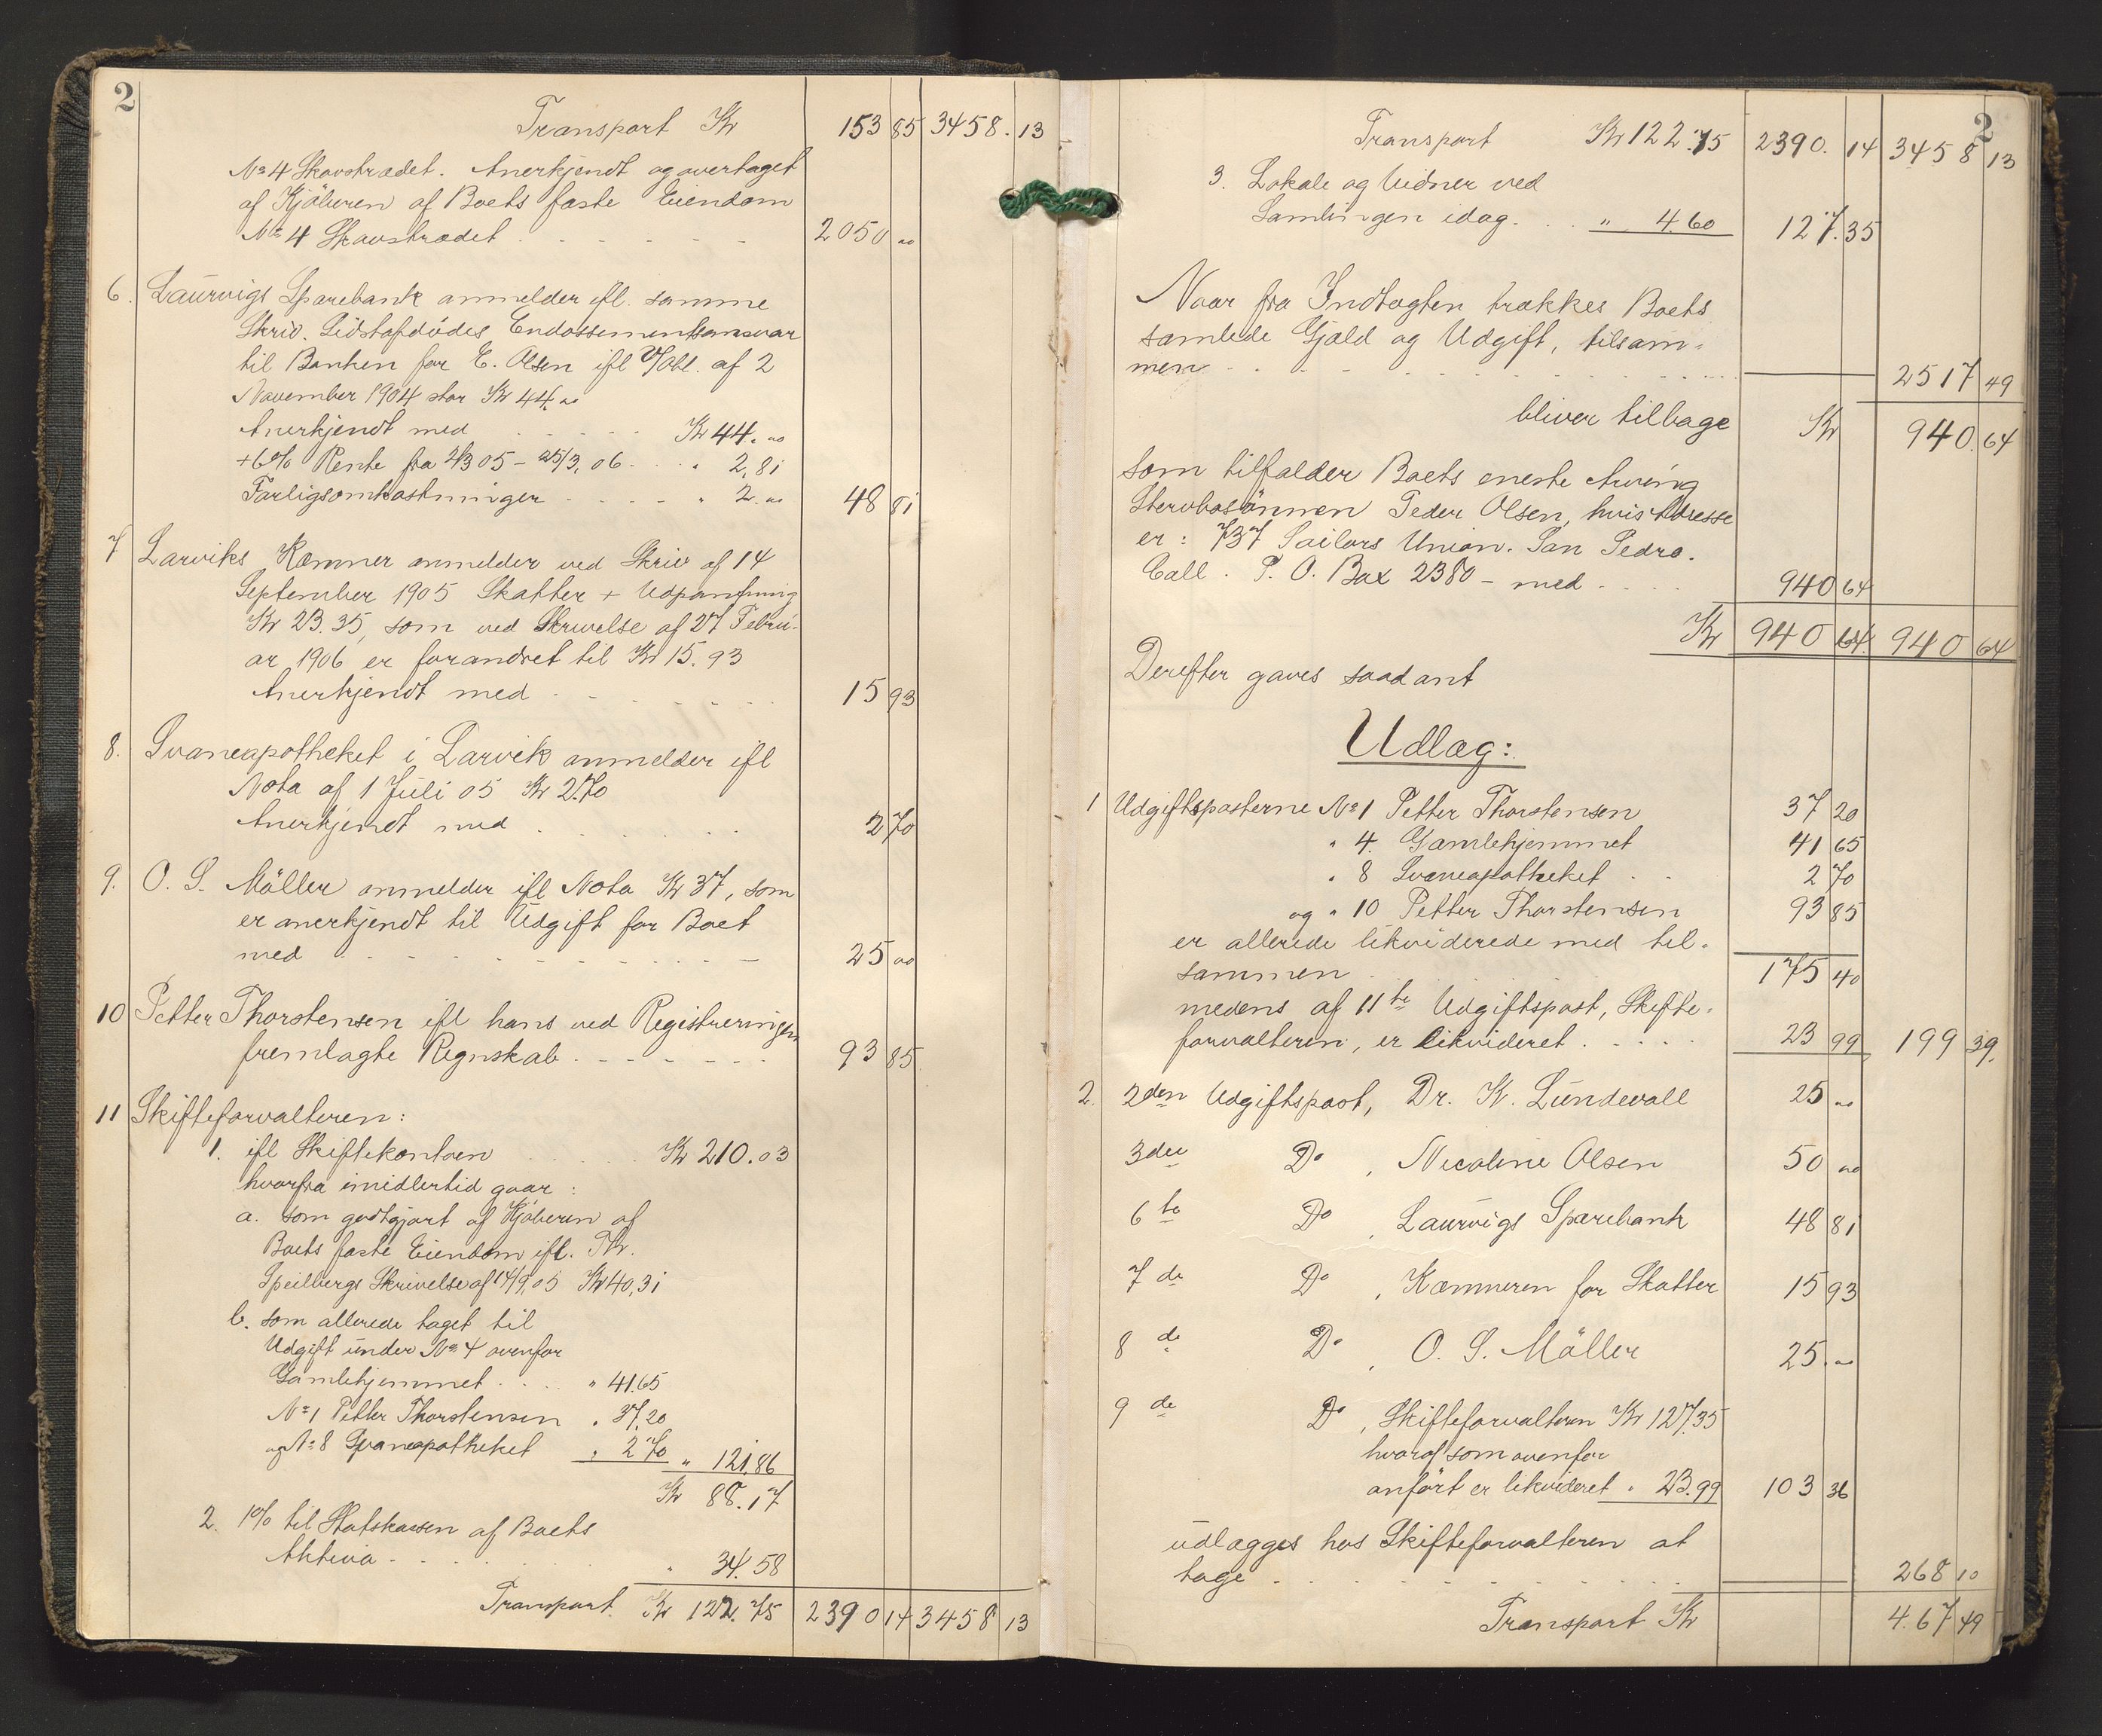 2
Transport Kr 153 85 3458. 13
No 4 Skovstrædet. Anerkjendt og overtaget
af Kjøberen af Boets faste Eiendom
No 4 Skovstrædet 2050 00
6. Laurvigs Sparebank anmelder ifl. samme
Skriv. Sidstafdødes Endossementsansvar
til Banken for E. Olsen ifl V/Obl. af 2
November 1904 stor Kr 44.00
Anerkjendt med Kr 44.00
+6% Rente fra 2/3 05 – 25/3.06 " 2,81
Forligsomkostninger " 2.00 48 81
7 Larviks Kæmner anmelder ved Skriv af 14
September 1905 Skatter + Udpantning
Kr 23.35, som ved Skrivelse af 27 Febru-
ar 1906 er forandret til Kr 15.93
Anerkjendt med 15 93
8. Svaneapotheket i Larvik anmelder ifl
Nota af 1 Juli 05 Kr 2.70
Anerkjendt med 2 70
9. O. S. Möller anmelder ifl Nota Kr 37, som
er anerkjendt til Udgift for Boet
med 25 00
10 Petter Thorstensen ifl hans ved Registreringen
fremlagte Regnskab 93 85
11 Skifteforvalteren:
1. ifl Skiftekontoen Kr 210.03
hvorfra imidlertid gaar:
a. som godtgjort af Kjøberen af
Boets faste Eiendom ifl. Thr.
Speilbergs Skrivelse af 14/9.05 Kr 40,31
b. som allerede taget til
Udgift under No 4 ovenfor
Gamlehjemmet " 41.65
No 1 Petter Thorstensen " 37.20
og No 8 Svaneapotheket " 2 70 " 121.86
Kr 88.17
2. 1% til Statskassen af Boets
Aktiva " 34.58
Transport. Kr 122.75 2390 14 3458 13
2
Transport Kr 122.75 2390. 14 3458 13
3. Lokale og Vidner ved
Samlingen idag. " 4.60 127.35
Naar fra Indtægten trækkes Boets
samlede Gjæld og Udgift, tilsam-
men 2517 49
bliver tilbage Kr 940.64
som tilfalder Boets eneste Arving
Stervbosönnen Peder Olsen, hvis Adresse
er: 737 Sailors Union. San Pedro.
Call. P. O. Box 2380 – med 940 64
Kr 940 64. 940 64
Derefter gaves saadant
Udlæg:
1 Udgiftsposterne No 1 Petter Thorstensen 37 20
" 4. Gamlehjemmet 41 65
" 8 Svaneapotheket 2 70
og " 10 Petter Thorstensen 93 85
er allerede likviderede med til-
sammen 175 40
medens af 11te Udgiftspost, Skifte-
forvalteren, er likvideret 23 99 199 39.
2. 2den Udgiftspost, Dr. K. Lundevall 25 00
3die Do , Nicoline Olsen 50 00
6te Do , Laurvigs Sparebank 48 81
7de Do , Kæmneren for Skatter 15 93
8de Do , O. S. Möller 25.00
9de Do , Skifteforvalteren Kr 127.35
hvoraf som ovenfor
anført er likvideret " 23.99 103 36
udlægges hos Skifteforvalteren at
tage 268 10
Transport Kr 4.67 49